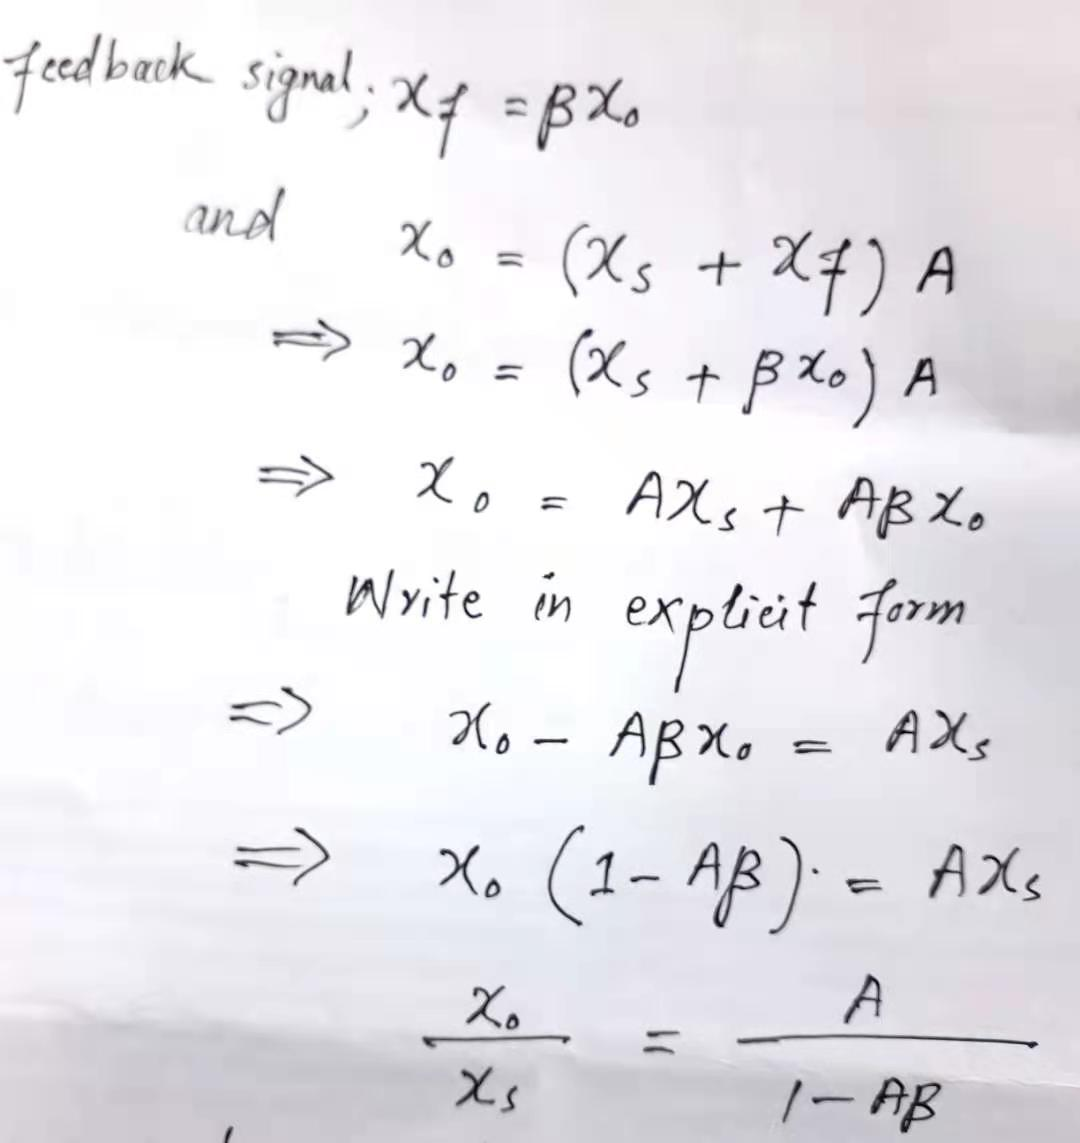 feedback signal; x_f = βx_o
and x_o = (x_s + x_f) A
⇒ x_o = (x_s + βx_o) A
⇒ x_o = Ax_s + Aβx_o
Write in explicit form
⇒ x_o - Aβx_o = Ax_s
⇒ x_o (1 - Aβ) = Ax_s
x_o / x_s = A / 1 - Aβ